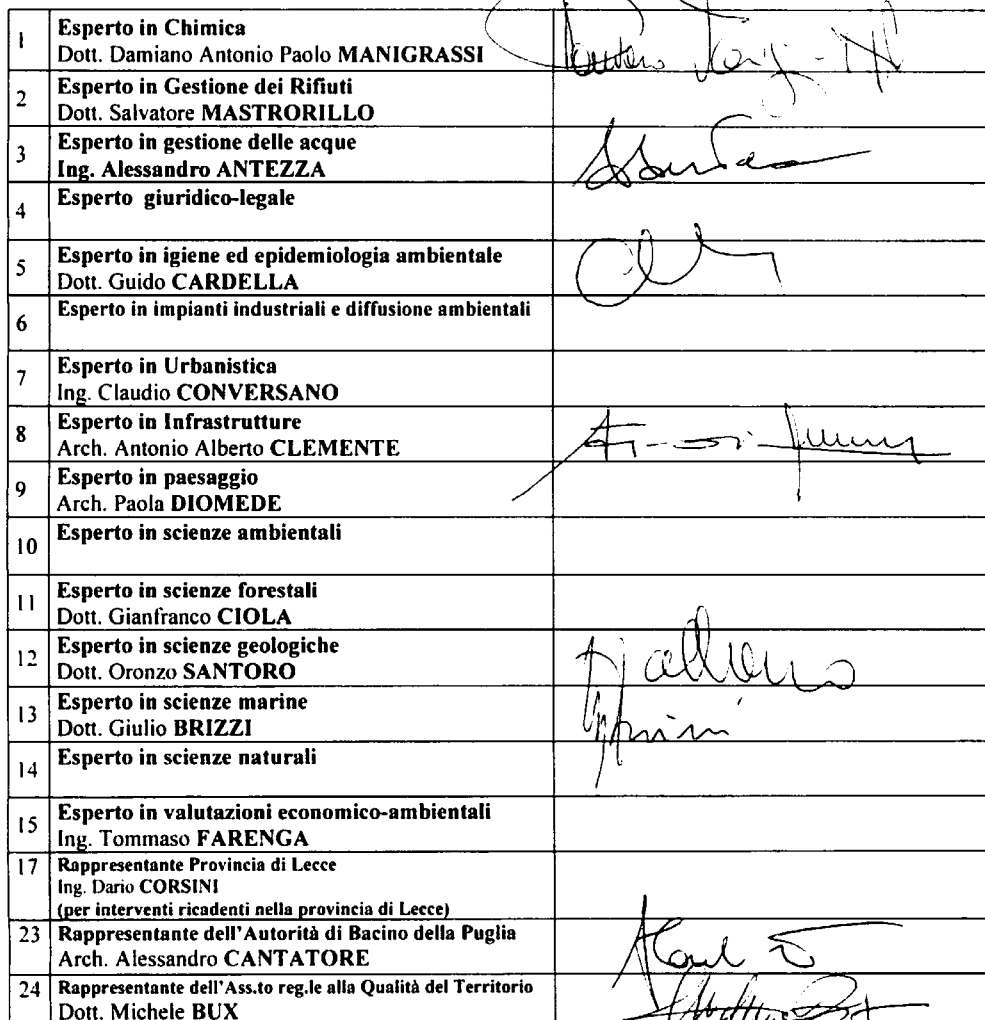 1 Esperto in Chimica
Dott. Damiano Antonio Paolo MANIGRASSI
2 Esperto in Gestione dei Rifiuti
Dott. Salvatore MASTRORILLO
3 Esperto in gestione delle acque
Ing. Alessandro ANTEZZA
4 Esperto giuridico-legale
5 Esperto in igiene ed epidemiologia ambientale
Dott. Guido CARDELLA
6 Esperto in impianti industriali e diffusione ambientali
7 Esperto in Urbanistica
Ing. Claudio CONVERSANO
8 Esperto in Infrastrutture
Arch. Antonio Alberto CLEMENTE
9 Esperto in paesaggio
Arch. Paola DIOMEDE
10 Esperto in scienze ambientali
11 Esperto in scienze forestali
Dott. Gianfranco CIOLA
12 Esperto in scienze geologiche
Dott. Oronzo SANTORO
13 Esperto in scienze marine
Dott. Giulio BRIZZI
14 Esperto in scienze naturali
15 Esperto in valutazioni economico-ambientali
Ing. Tommaso FARENGA
17 Rappresentante Provincia di Lecce
Ing. Dario CORSINI
(per interventi ricadenti nella provincia di Lecce)
23 Rappresentante dell'Autorità di Bacino della Puglia
Arch. Alessandro CANTATORE
24 Rappresentante dell'Ass.to reg.le alla Qualità del Territorio
Dott. Michele BUX